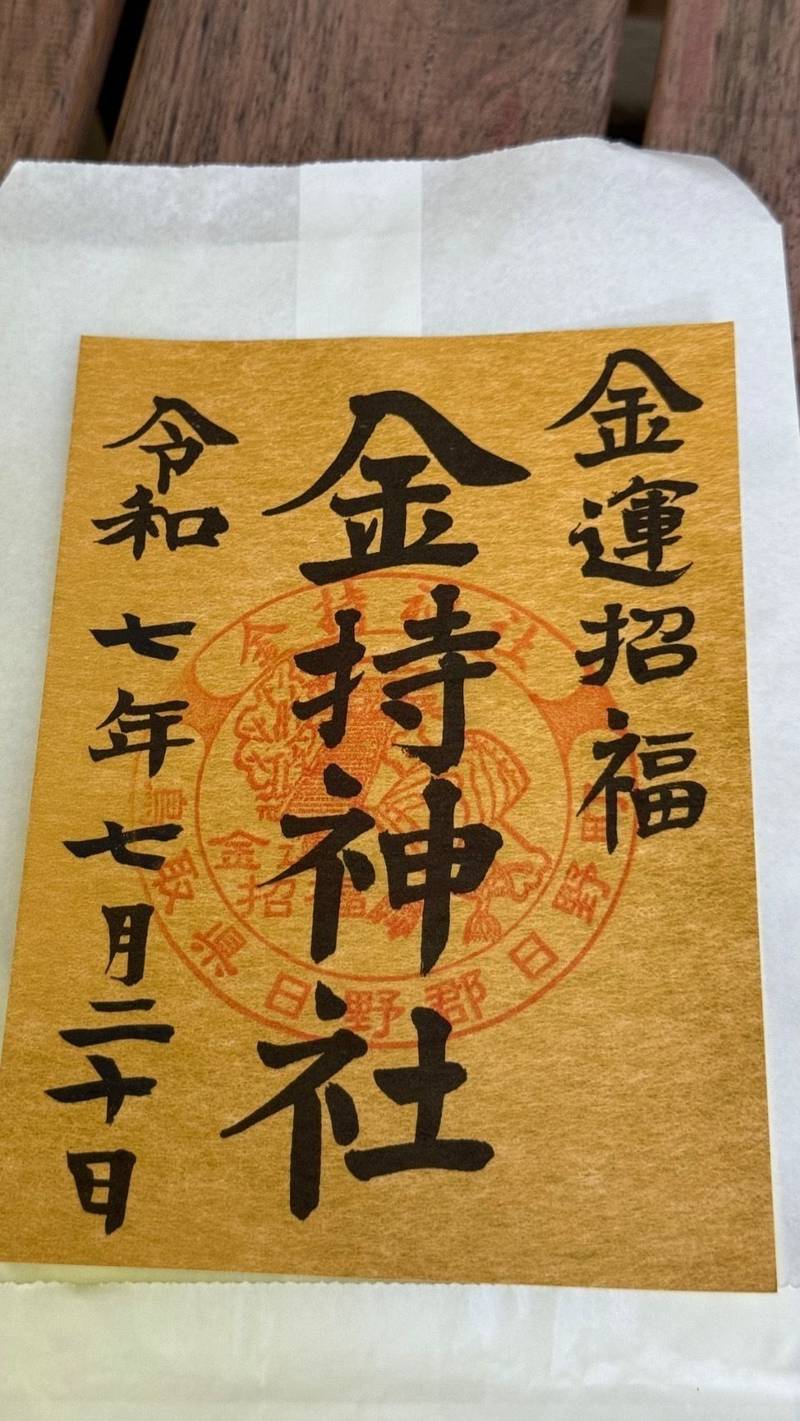 金運招福
金持神社
令和七年七月二十日
金持神社
鳥取県日野郡日野町
金運
招福